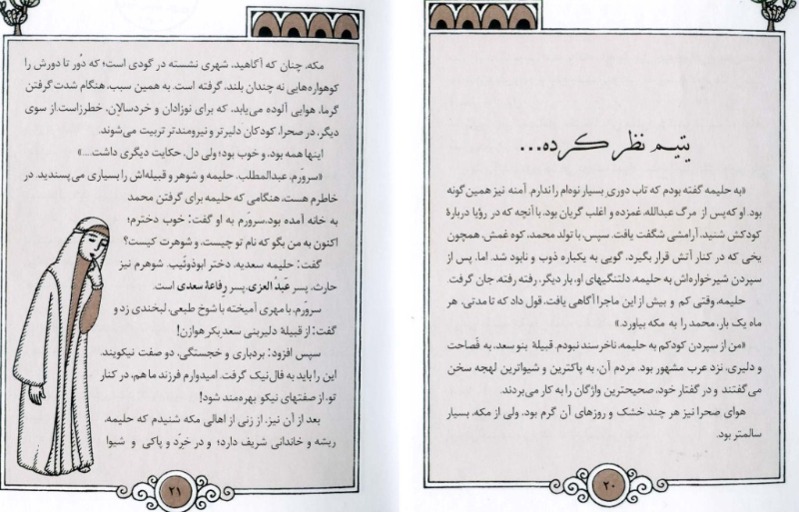 یتیم نظر کرده...
«به حلیمه گفته بودم که تاب دوری بسیار نوه‌ام را ندارم. آمنه نیز همین‌گونه
بود. او که پس از مرگ عبدالله، غمزده و اغلب گریان بود. با آنچه که در رؤیا دربارهٔ
کودکش شنید، آرامشی شگفت یافت. سپس، با تولد محمد، کوه غمش، همچون
یخی که در کنار آتش قرار بگیرد، گویی به یکباره ذوب و نابود شد. اما، پس از
سپردن شیرخواره‌اش به حلیمه، دلتنگیهای او، بار دیگر، رفته رفته، جان گرفت.
حلیمه، وقتی کم و بیش از این ماجرا آگاهی یافت، قول داد که تا مدتی، هر
ماه یک بار، محمد را به مکه بیاورد.»
«من از سپردن کودکم به حلیمه، ناخرسند نبودم. قبیلهٔ بنو سعد، به فَصاحت
و دلیری، نزد عرب مشهور بود. مردم آن، به پاکترین و شیواترین لهجه سخن
می‌گفتند و در گفتار خود، صحیحترین واژگان را به کار می‌بردند.
هوای صحرا نیز هر چند خشک و روزهای آن گرم بود. ولی از مکه، بسیار
سالمتر بود.
۲۰
مکه، چنان که آگاهید، شهری نشسته در گودی است؛ که دُور تا دورش را
کوهواره‌هایی نه چندان بلند، گرفته است. به همین سبب، هنگام شدت گرفتن
گرما، هوایی آلوده می‌یابد، که برای نوزادان و خردسالان، خطرزاست. از سوی
دیگر، در صحرا، کودکان دلیرتر و نیرومندتر تربیت می‌شوند.
اینها همه بود، و خوب بود؛ ولی دل، حکایت دیگری داشت....»
«سرورَم، عبدالمطلب، حلیمه و شوهر و قبیله‌اش را بسیاری می‌پسندید. در
خاطرم هست، هنگامی که حلیمه برای گرفتن محمد
به خانه آمده بود، سرورَم به او گفت: خوب دخترم؛
اکنون به من بگو که نام تو چیست، و شوهرت کیست؟
گفت: حلیمه سعدیه، دختر ابوذوئَیب. شوهرم نیز
حارث، پسر عَبدُ العزی، پسر رِفاعهٔ سعدی است.
سرورَم، با مهری آمیخته با شوخ طبعی، لبخندی زد و
گفت: از قبیلهٔ دلیربنی سعد بکر هوازن!
سپس افزود: بردباری و خجستگی، دو صفت نیکویند.
این را باید به فال نیک گرفت. امیدوارم فرزند ما هم، در کنار
تو، از صفتهای نیکو بهره‌مند شود!
بعد از آن نیز، از زنی از اهالی مکه شنیدم که حلیمه،
ریشه و خاندانی شریف دارد؛ و در خِرَد و پاکی و شیوا
۲۱